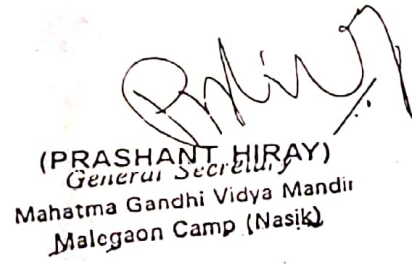 (PRASHANT HIRAY)
General Secretary
Mahatma Gandhi Vidya Mandir
Malegaon Camp (Nasik)